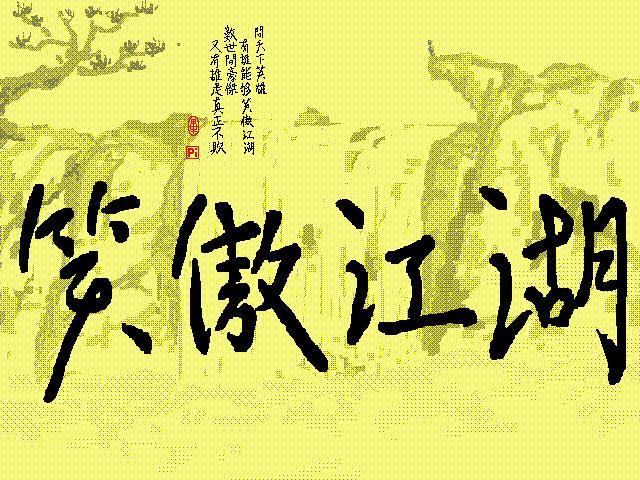 問天下英雄
有誰能够笑傲江湖
數世間豪傑
又有誰是真正不敗
Pi
笑傲江湖